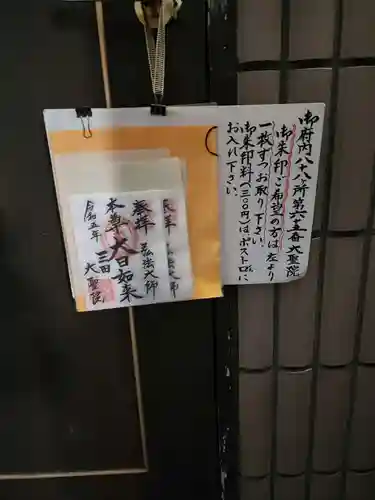 御府内八十八ヶ所第六十五番大聖院
御朱印ご希望の方は左より
一枚ずつお取り下さい。
御朱印料(三〇〇円)はポストに
お入れ下さい。
奉拝
弘法大師
本尊
大日如来
令和五年
三田
大聖院